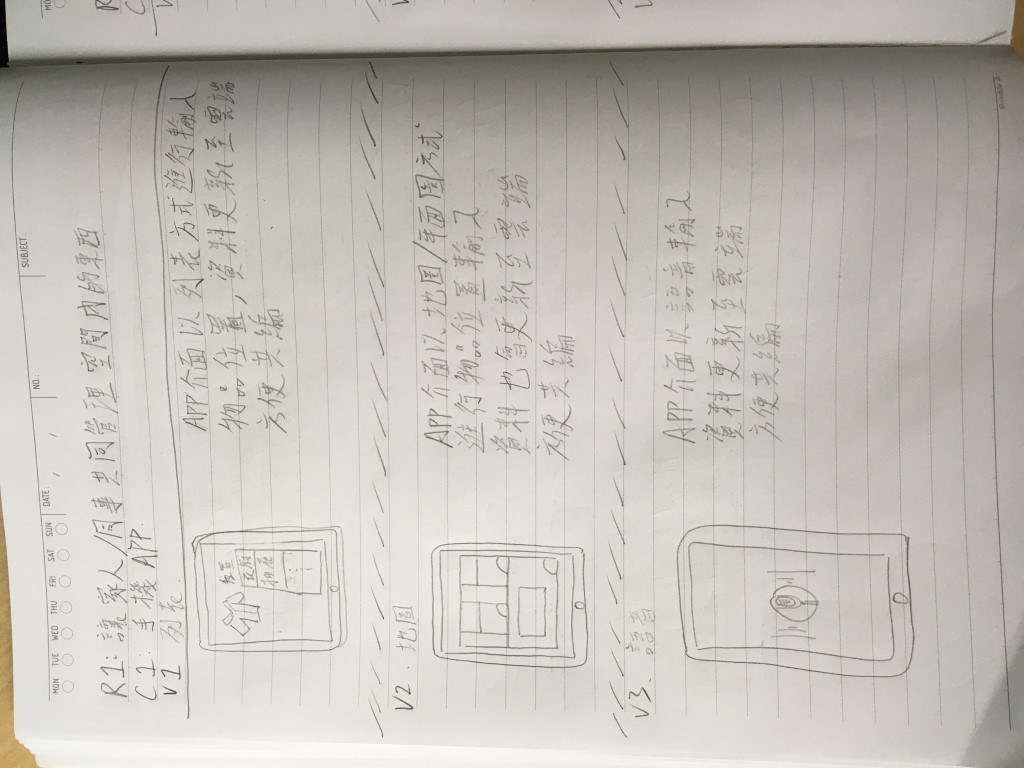 MON TUE WED THU FRI SAT SUN
DATE: / /
NO.:
SUBJECT:
R1: 讓家人/同事共同管理空間內的東西
C1: 手機 APP
V1 列表.
位置
衣廚
抽屉
APP介面以列表方式進行輸入
物品位置,資料更新至雲端
方便共編
V2. 地圖
APP介面以地图/平面圖方式
進行物品位置輸入
資料也會更新至雲端
方便共編
V3. 語音
APP介面以語音輸入
資料更新至雲端
方便共編